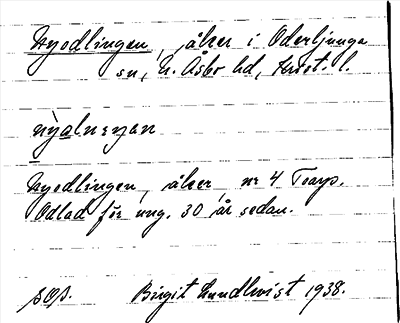 Nyodlingen, åker i Oderljunga
sn, N. Åsbo hd, Krist. l.
Nyodlingen, åker, nr 4 Toarp.
Odlad för ung. 30 år sedan.
Birgit Lundkvist 1938.